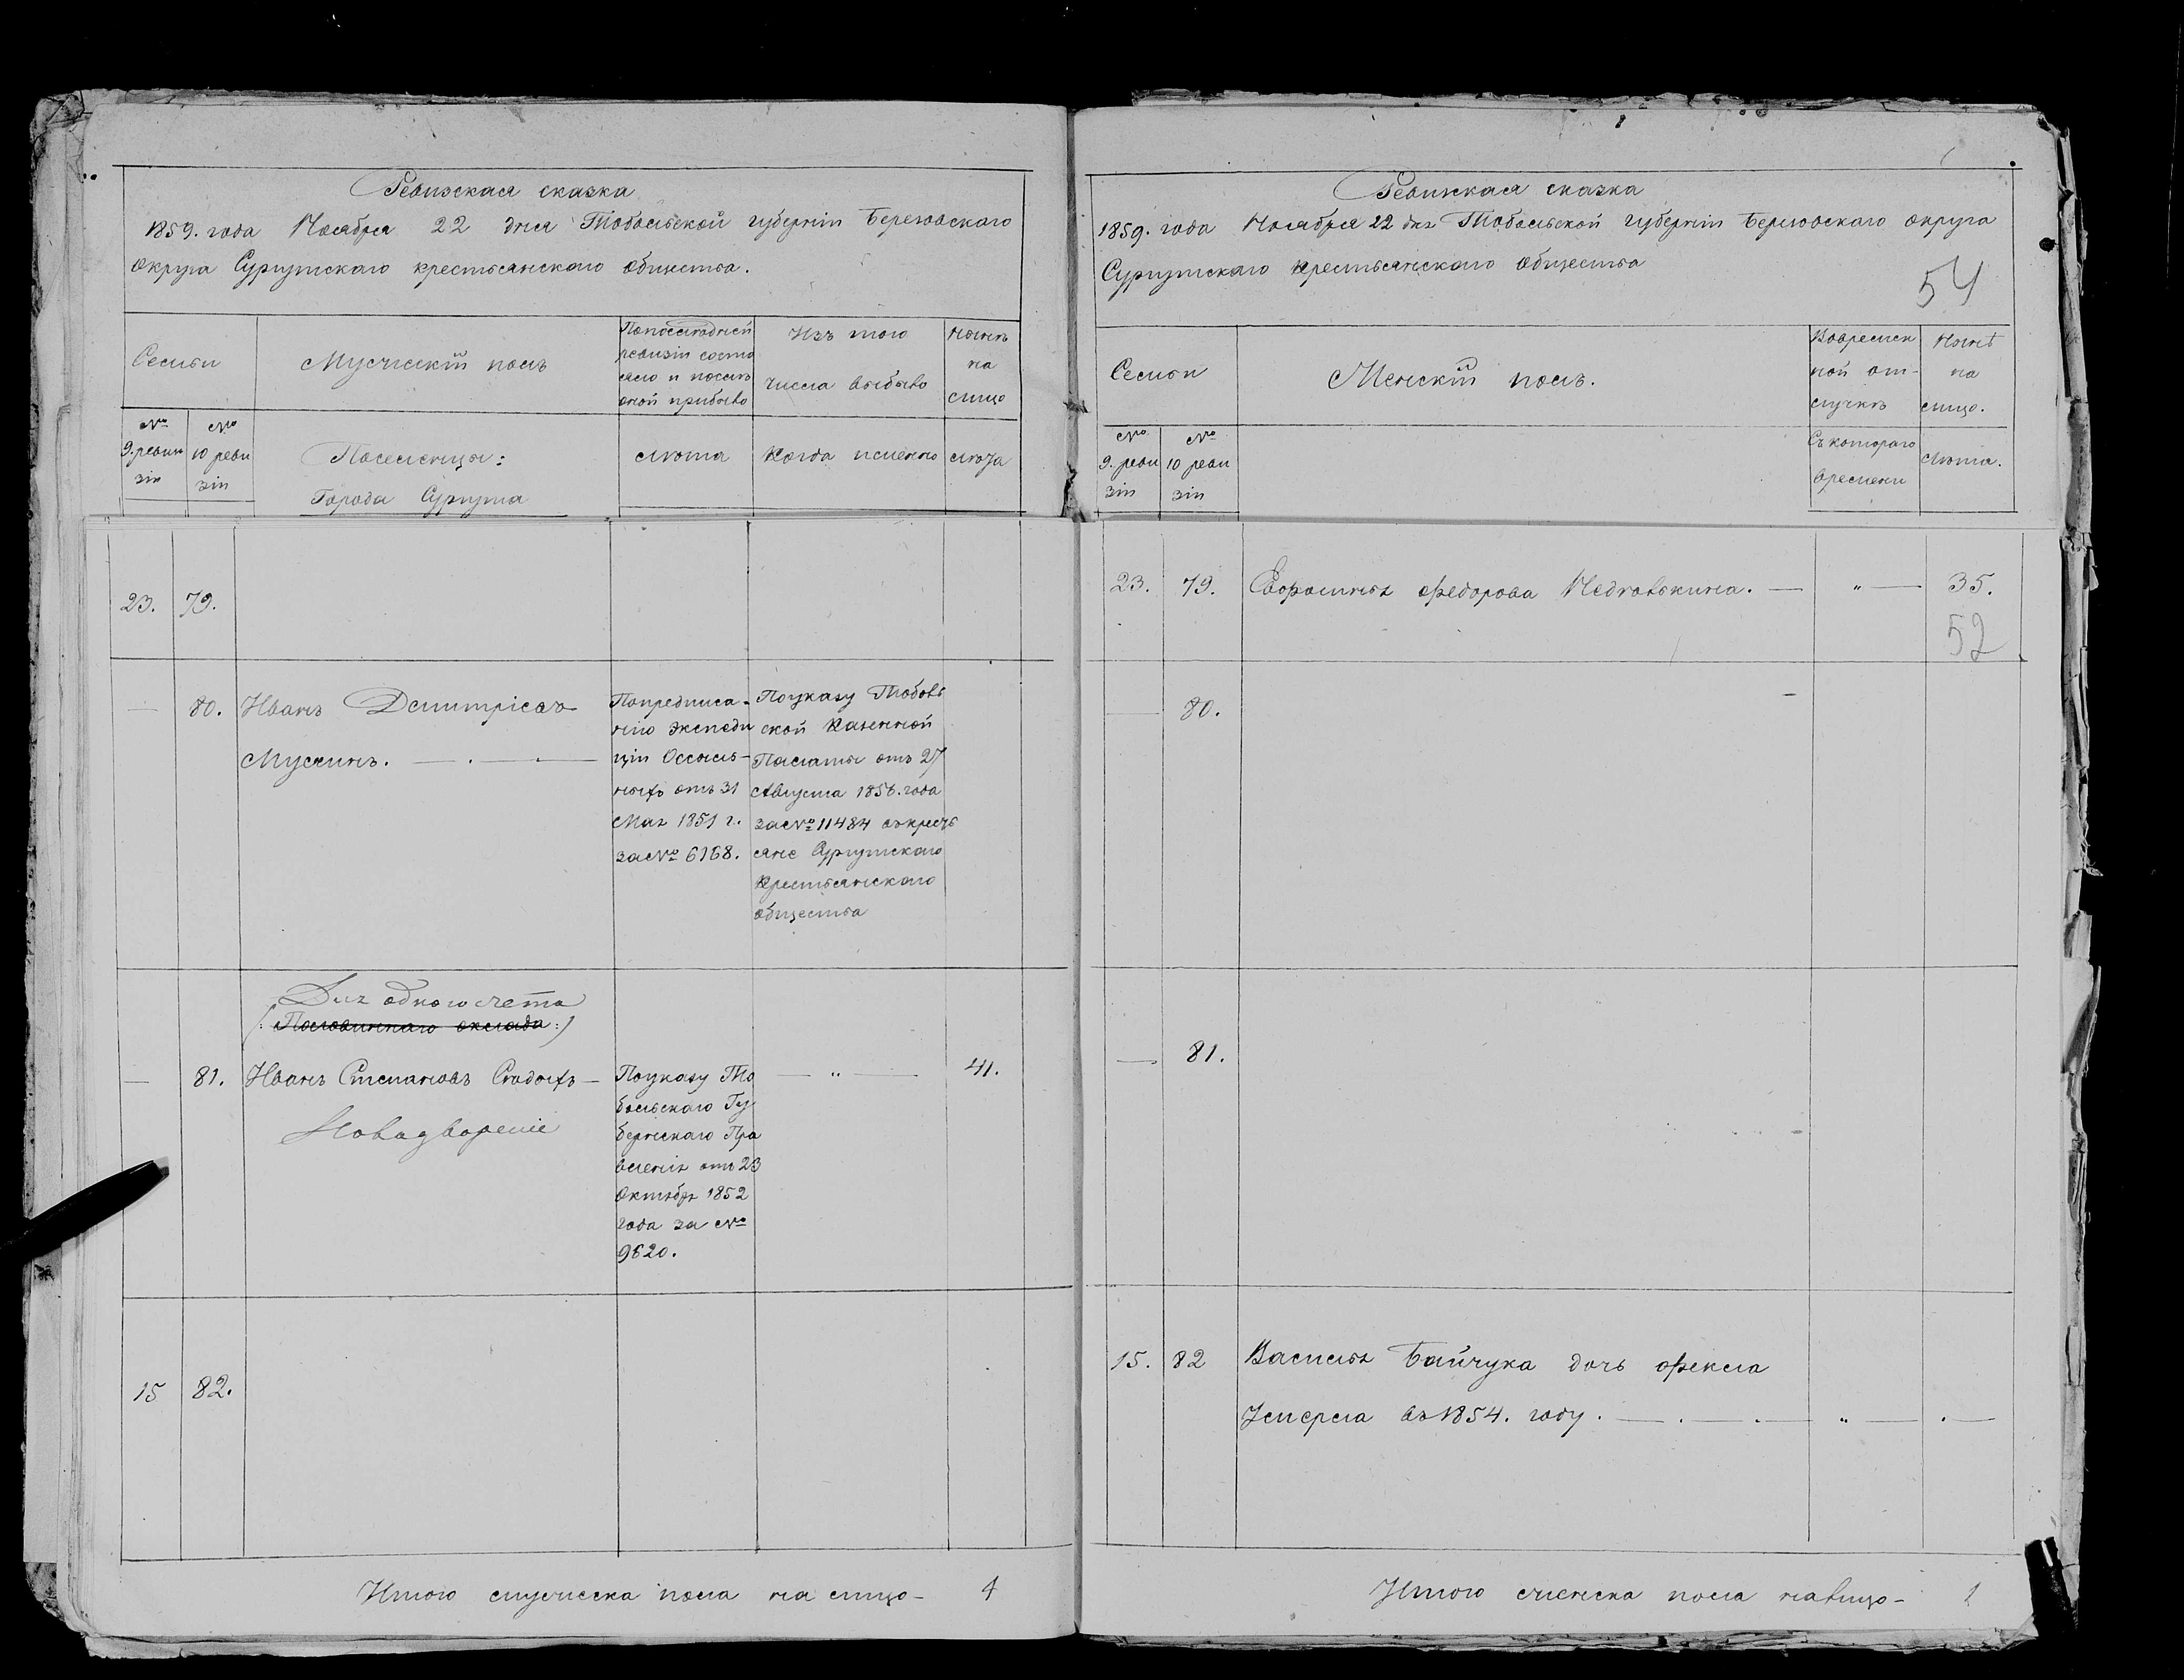 Ревизская сказка
1859. года Ноября 22 дня Тобольской губерніи Березовскаго
округа Сургутскаго крестьянскаго общества.
Семьи
Мужескій полъ
По последней
ревизіи состо
яло и после
оной прибыло
Изъ того
числа выбыло
Ныне
на
лицо
№
9. реви
зіи
№
10 реви
зіи
Поселенцы:
Города Сургута
лета
Когда именно
лета
23. 79.
— 80. Иванъ Димитріевъ
Мухинъ.
По предписа-
нію Экспеди
ціи Ссыль-
ныхъ отъ 31
Мая 1851 г.
за № 6168.
По указу Тоболь
ской Казенной
Палаты отъ 27
Августа 1856. года
за № 11484 въ кресть
яне Сургутскаго
Крестьянскаго
общества
Для одного счета
(: Половиннаго оклада :)
— 81. Иванъ Степановъ Сѣдыхъ —
По указу То
больскаго Гу
бернскаго Пра
вленія отъ 23
Октября 1852
года за №
9620.
— „ — 41.
15 82.
Итого мужеска пола на лицо — 1
Ревизская сказка
1859. года Ноября 22 дня Тобольской губерніи Березовскаго округа
Сургутскаго крестьянскаго общества
54
Семьи
Женскій полъ.
Во времен
ной от-
лучкѣ
Нынѣ
на
лицо.
№
9. реви
зіи
№
10 реви
зіи
Съ котораго
времени
Лѣта.
23. 79. Ефросинья Федорова — „ — 35.
52
— 80.
— 81.
15. 82 Василья Байчука дочь Фекла
Умерла въ 1854. году. — „ —
Итого женска пола на лицо — 1